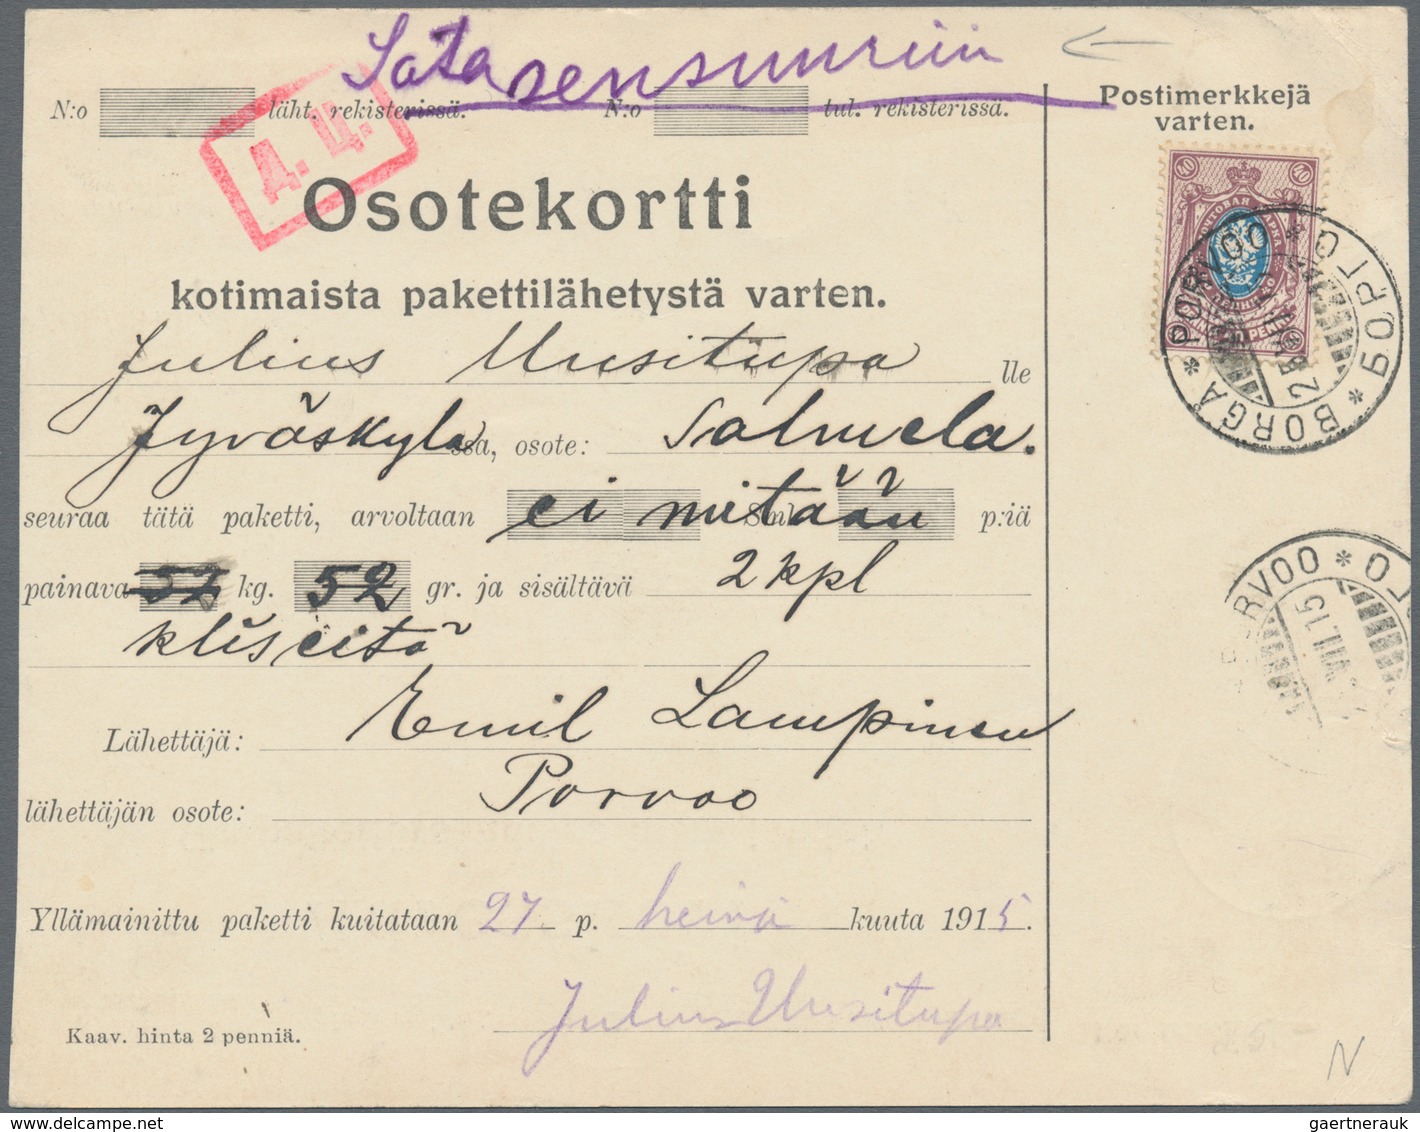 Sotasensuuriin
N:o läht. rekisterissä. N:o tul. rekisterissä.
Postimerkkejä
varten.
Д. Ц.
Osotekortti
kotimaista pakettilähetystä varten.
Julius Uusitupa lle
Jyväskylässä, osote: Salmela.
seuraa tätä paketti, arvoltaan ei mitään Smk p:iä
painava 52 kg. 52 gr. ja sisältävä 2 kpl
kliseitä
Lähettäjä: Emil Lampinen
lähettäjän osote: Porvoo
Yllämainittu paketti kuitataan 27 p. heinä kuuta 1915.
Julius Uusitupa
Kaav. hinta 2 penniä.
40 40
ПОЧТОВАЯ МАРКА
PEN
* PORVOO * БОРГО * BORGÅ
RVOO * ГО
VII.15
N
gaertnerauk